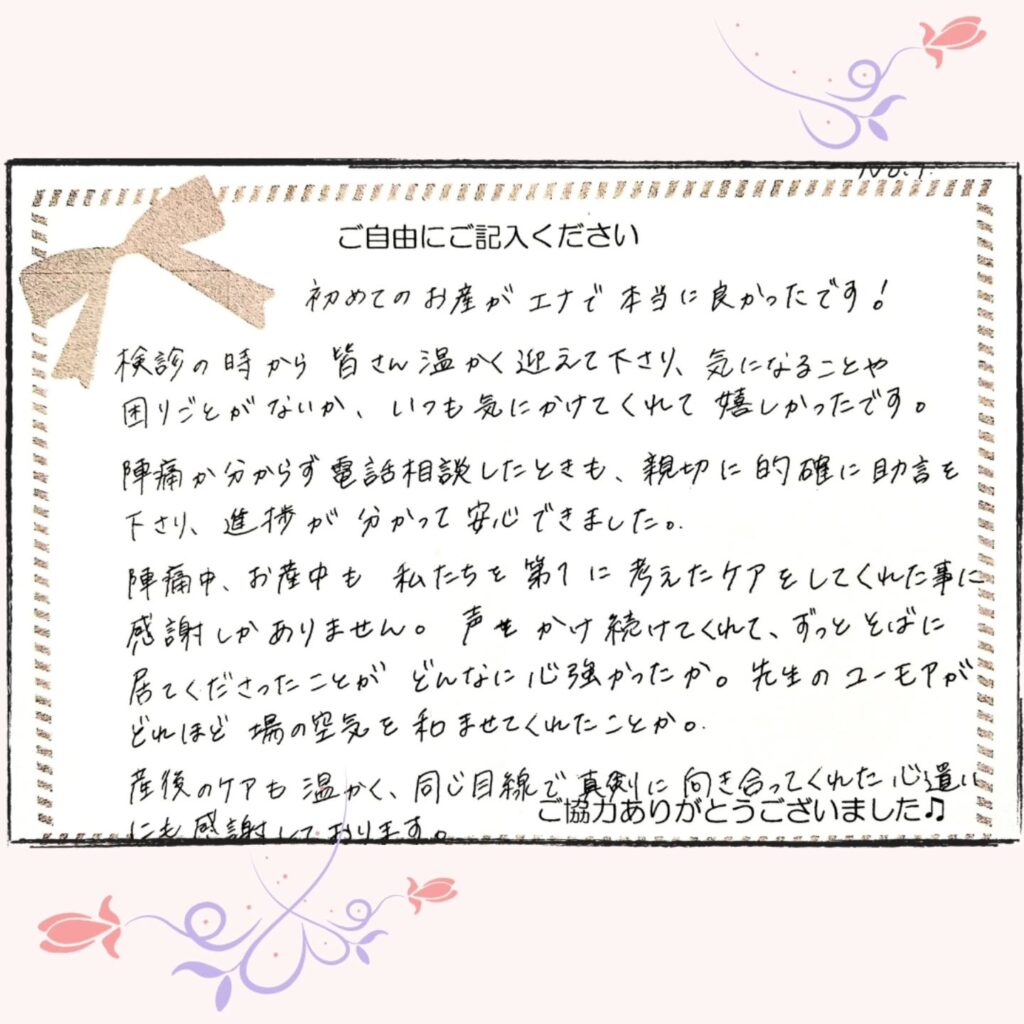 No.1.
ご自由にご記入ください
初めてのお産がエナで本当に良かったです!
検診の時から皆さん温かく迎えて下さり、気になることや
困りごとがないか、いつも気にかけてくれて嬉しかったです。
陣痛か分からず電話相談したときも、親切に的確に助言を
下さり、進捗が分かって安心できました。
陣痛中、お産中も私たちを第1に考えたケアをしてくれた事に
感謝しかありません。声をかけ続けてくれて、ずっとそばに
居てくださったことがどんなに心強かったか。先生のユーモアが
どれほど場の空気を和ませてくれたことか。
産後のケアも温かく、同じ目線で真剣に向き合ってくれた心遣い
にも感謝しております。
ご協力ありがとうございました♫